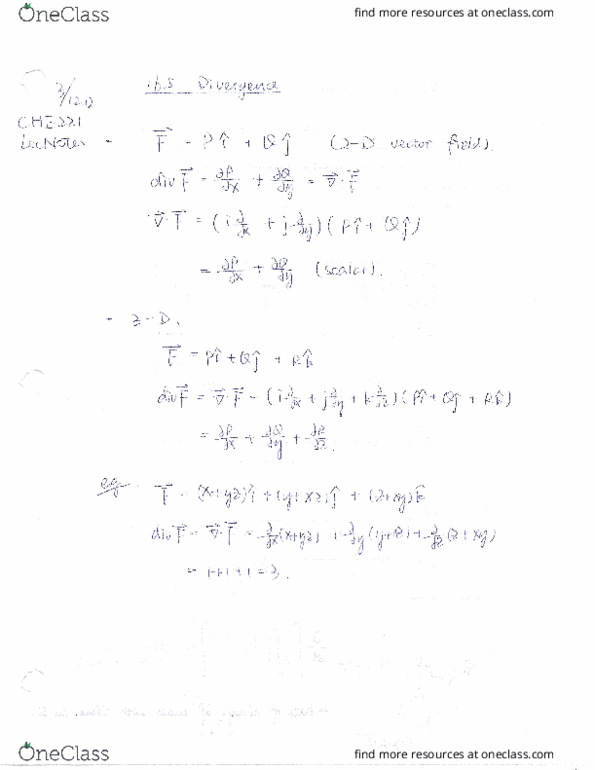 OneClass
find more resources at oneclass.com
16.5 Divergence
3/12.12
CHE221
Lec Notes
- F⃗ = Pî + Qĵ (2-D vector field).
div F⃗ = ∂P/∂x + ∂Q/∂y = ∇⃗·F⃗
∇⃗·F⃗ = (i ∂/∂x + j ∂/∂y)(Pî + Qĵ)
= ∂P/∂x + ∂Q/∂y (scalar).
- 3-D.
F⃗ = Pî + Qĵ + Rk̂
div F⃗ = ∇⃗·F⃗ = (i ∂/∂x + j ∂/∂y + k ∂/∂z)(Pî + Qĵ + Rk̂)
= ∂P/∂x + ∂Q/∂y + ∂R/∂z.
eg F⃗ = (x+yz)î + (y+xz)ĵ + (z+xy)k̂
div F⃗ = ∇⃗·F⃗ = ∂/∂x(x+yz) + ∂/∂y(y+xz) + ∂/∂z(z+xy)
= 1+1+1 = 3.
OneClass
find more resources at oneclass.com